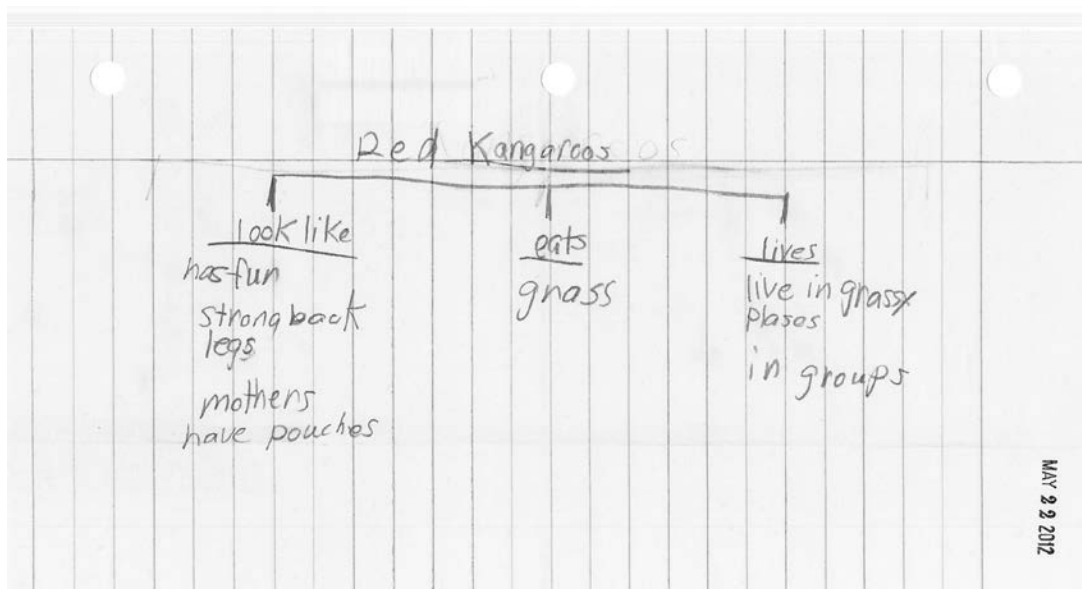 Red Kangaroos
look like
has fur
strong back
legs
mothers
have pouches
eats
grass
lives
live in grassy
plases
in groups
MAY 22 2012